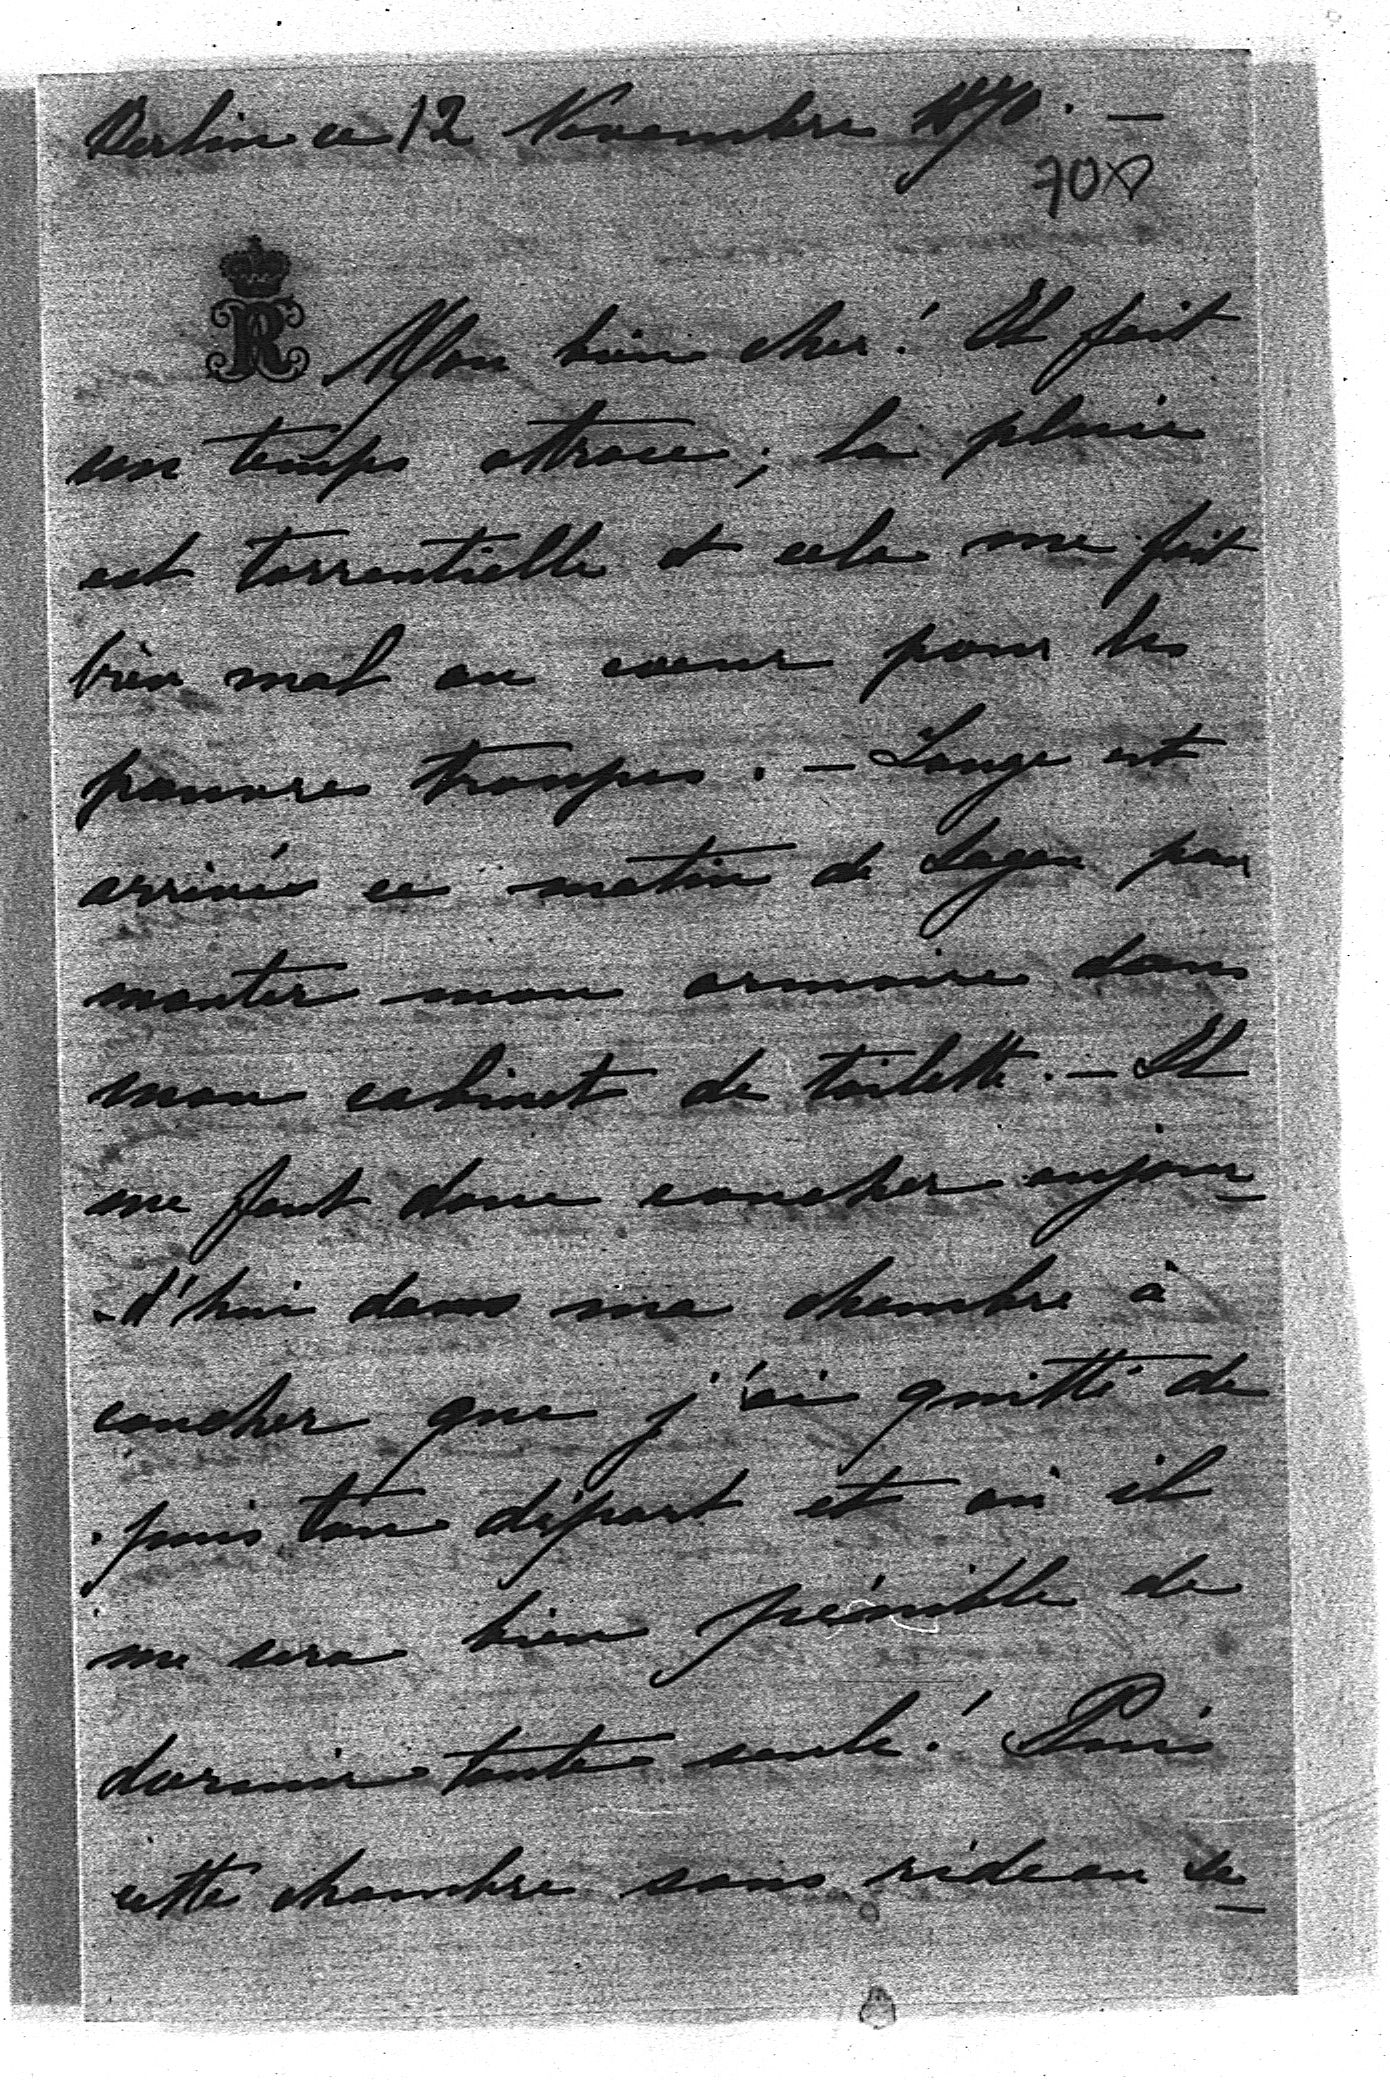 Berlin ce 12 Novembre 1870. —
708
R
Mon bien cher! Il fait
un temps attroce; la pluie
est torrentielle et cela me fait
bien mal au coeur pour les
pauvres troupes. — Lange est
arrivé ce matin de Sagan pour
monter mon armoire dans
mon cabinet de toilette. — Il
me faut donc coucher aujour-
-d'hui dans ma chambre à
coucher que j'ai quitté de
puis ton départ et où il
me sera bien pénible de
dormir toute seule! Puis
cette chambre sans rideau se-